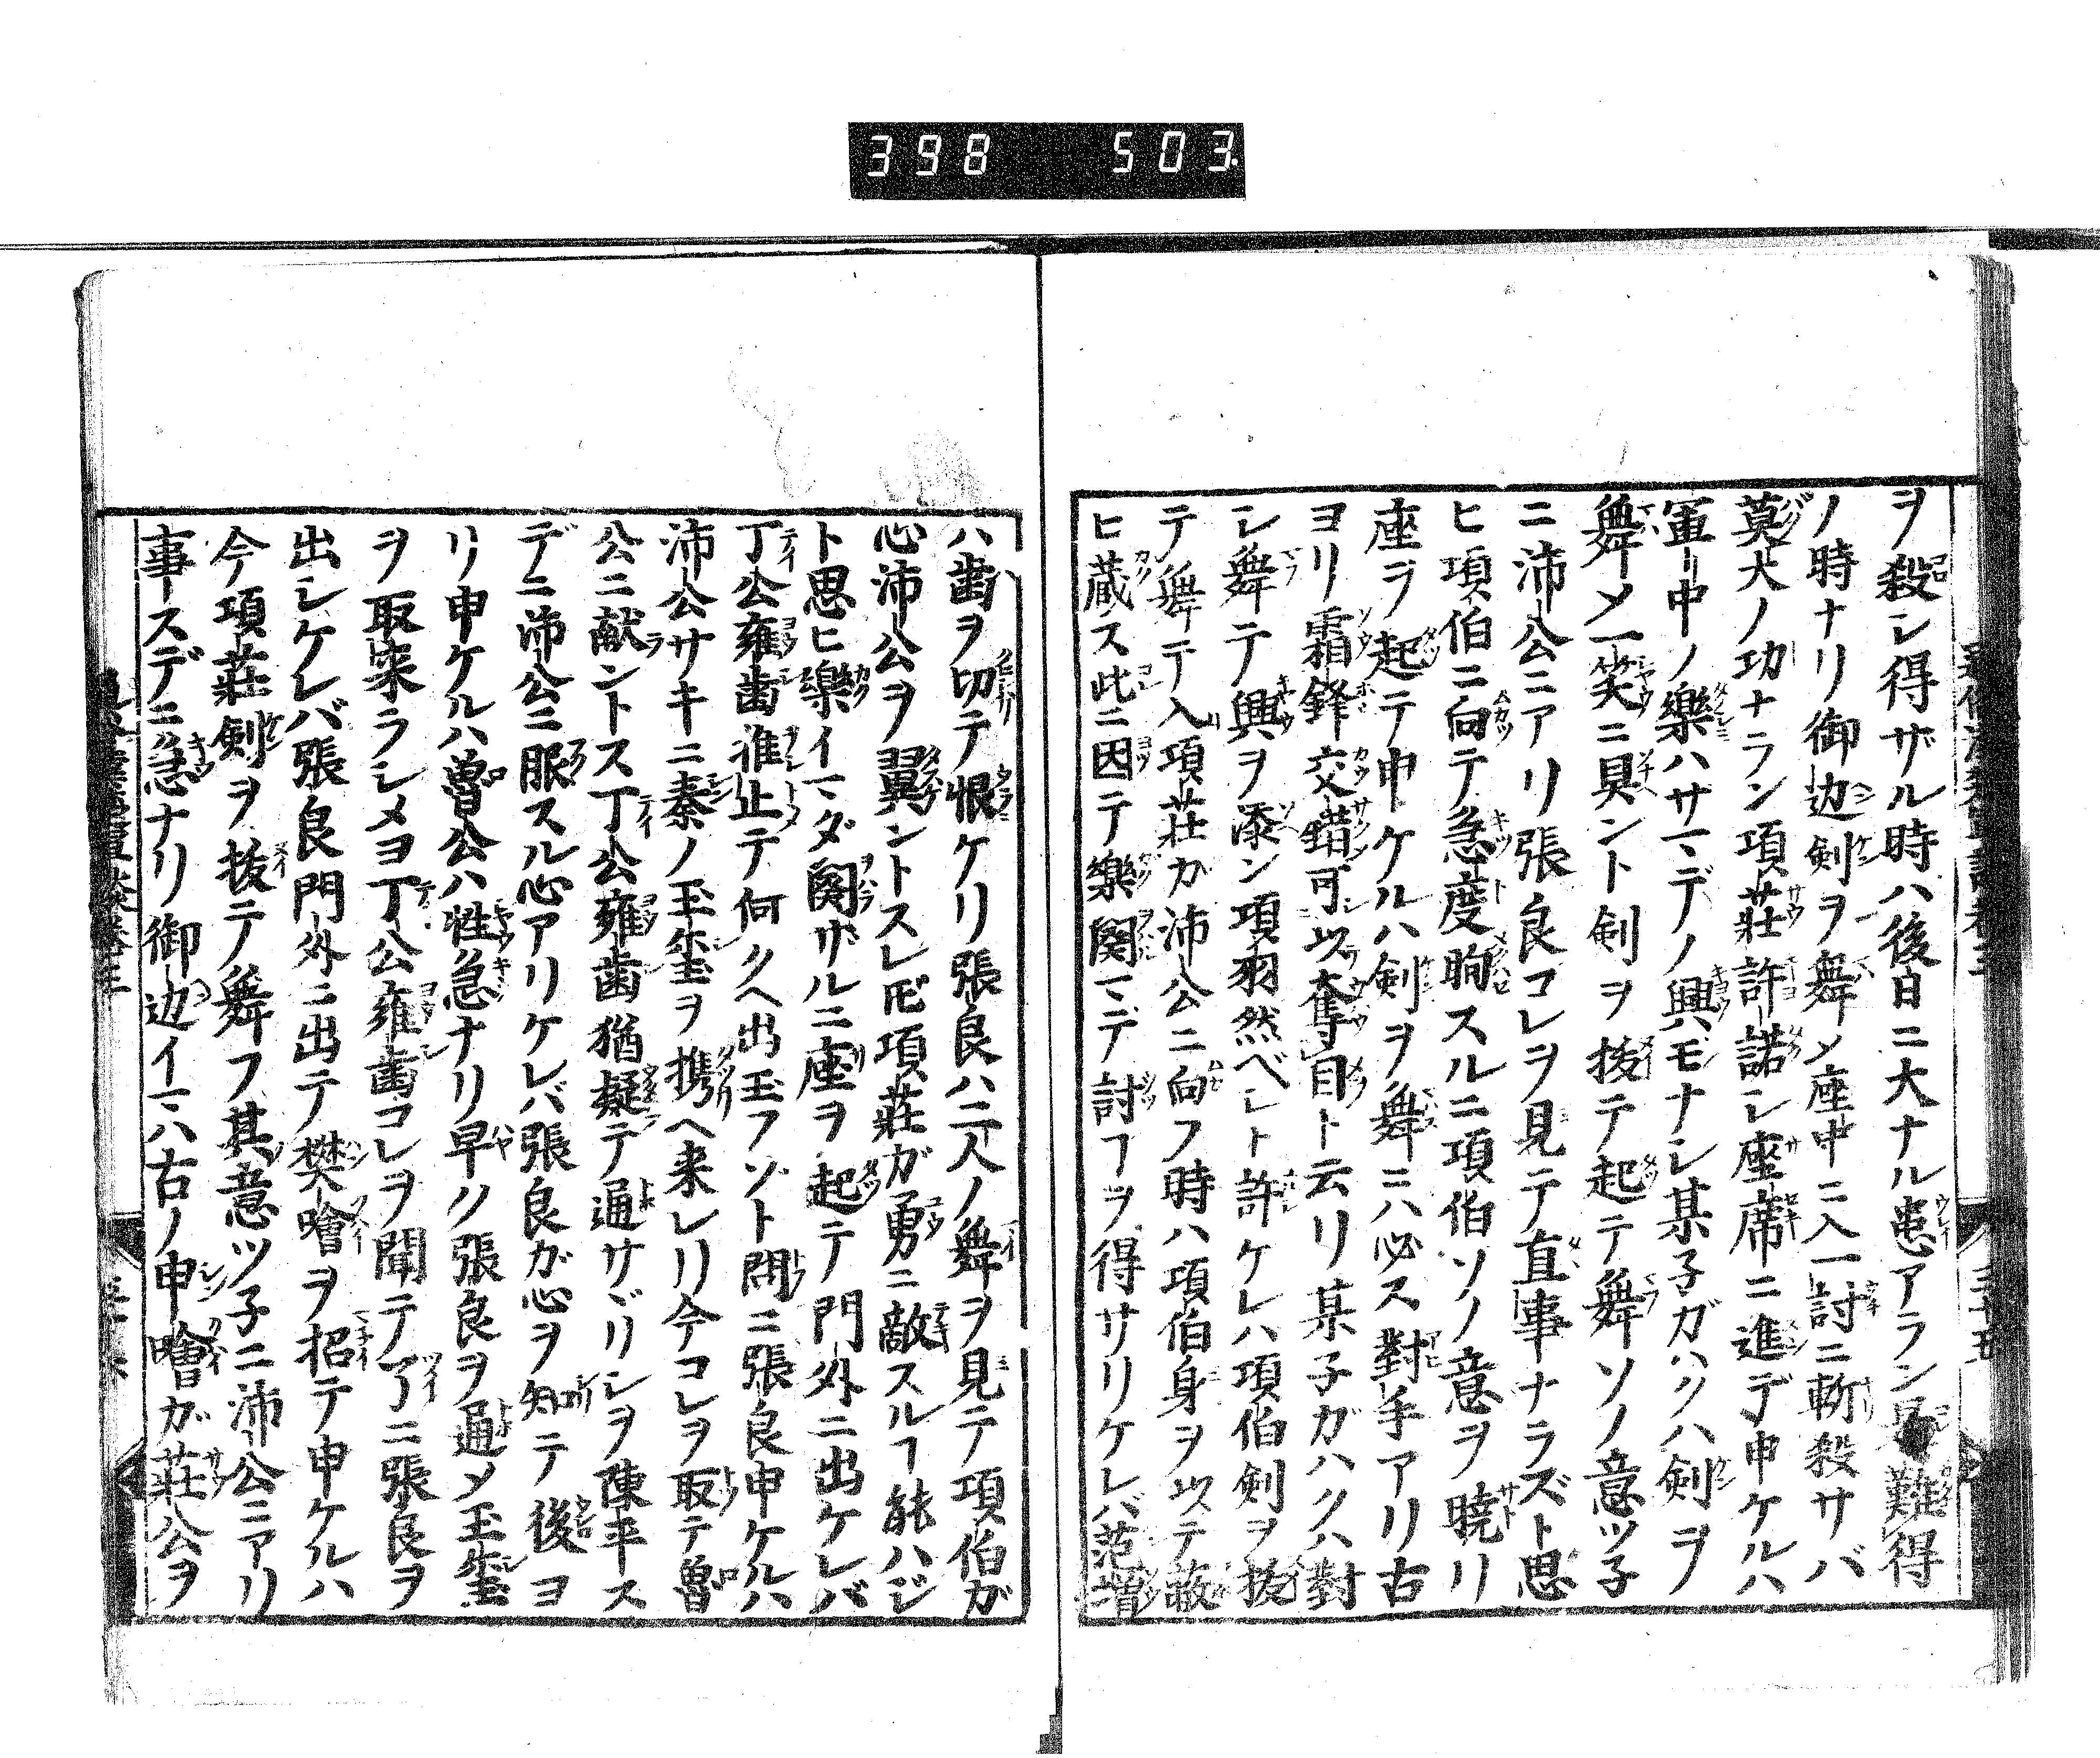 398 503
ヲ殺シ得ザル時ハ後日ニ大ナル患アラン難得
ノ時ナリ御辺剣ヲ舞メ座中ニ入一討ニ斬殺サバ
莫大ノ功ナラン項莊許諾シ座席ニ進デ申ケルハ
軍中ノ樂ハサマデノ興モナシ某子ガハクハ剣ヲ
舞メ一笑ニ具ント剣ヲ抜テ起テ舞ソノ意ツ子
ニ沛公ニアリ張良コレヲ見テ直事ナラズト思
ヒ項伯ニ向テ急度眴スルニ項伯ソノ意ヲ暁リ
座ヲ起テ申ケルハ剣ヲ舞ニハ必ス對手アリ古
ヨリ霜鋒交錯可以奪目ト云リ某子ガハクハ對
シ舞テ興ヲ添ン項羽然ベシト許ケレハ項伯剣ヲ抜
テ舞テ入項莊カ沛公ニ向フ時ハ項伯身ヲ以テ蔽
ヒ蔵ス此ニ因テ樂闋マデ討ヿヲ得サリケレバ范増
ハ歯ヲ切テ恨ケリ張良ハ二人ノ舞ヲ見テ項伯ガ
心沛公ヲ翼ントスレ𪜈項莊ガ勇ニ敵スルヿ能ハジ
ト思ヒ樂イマダ闋ザルニ座ヲ起テ門外ニ出ケレバ
丁公雍歯進止テ何クヘ出玉フゾト問ニ張良申ケルハ
沛公サキニ秦ノ玉璽ヲ携ヘ来レリ今コレヲ取テ魯
公ニ献ントス丁公雍歯猶擬テ通サヾリシヲ陳平ス
デニ沛公ニ服スル心アリケレバ張良ガ心ヲ知テ後ヨ
リ申ケルハ魯公ハ性急ナリ早ク張良ヲ通メ玉璽
ヲ取来ラシメヨ丁公雍歯コレヲ聞テ了ニ張良ヲ
出シケレバ張良門外ニ出テ樊噲ヲ招テ申ケルハ
今項莊剣ヲ抜テ舞フ其意ツ子ニ沛公ニアリ
事スデニ急ナリ御辺イマハ古ノ申噲ガ莊公ヲ